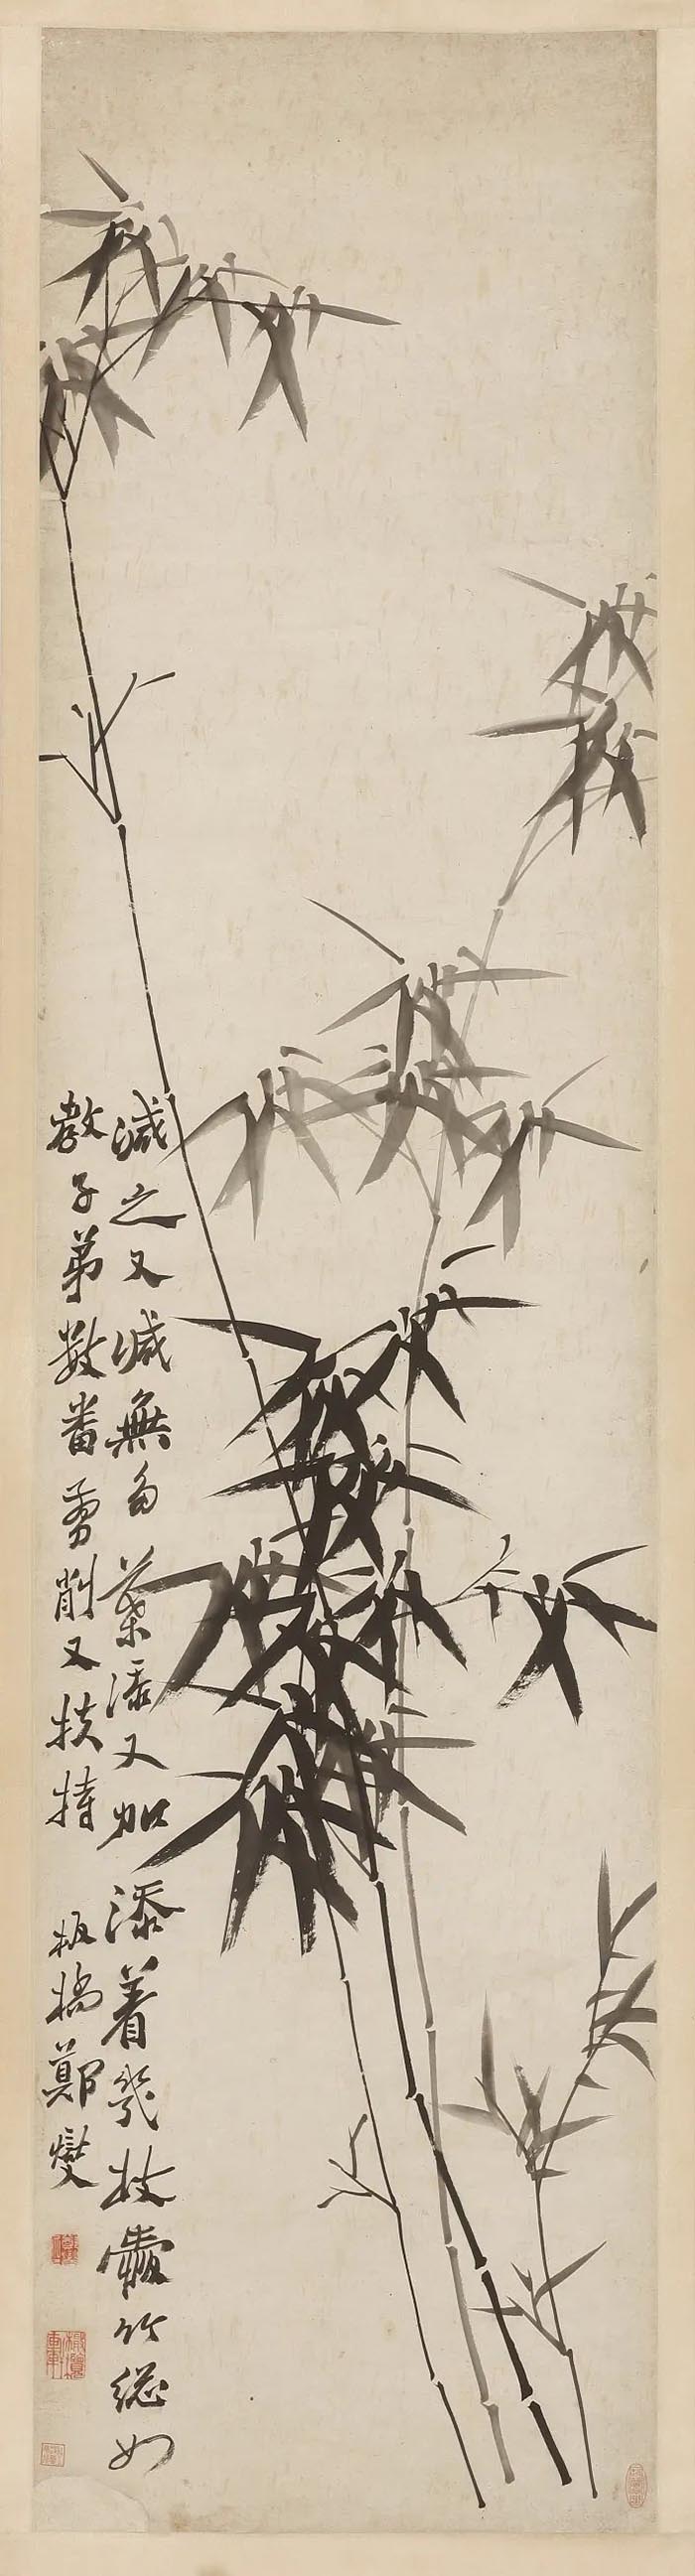 減之又減無多葉添又加添着幾枝愛竹總如
教子弟數番剪削又扶持 板橋鄭燮